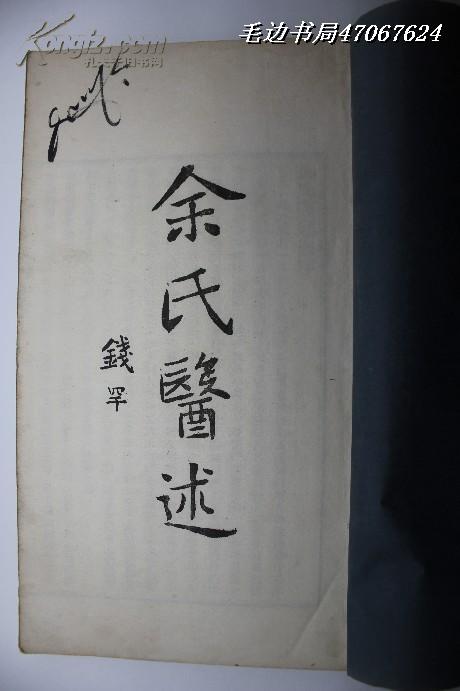 毛边书局47067624
Kongfz.com
孔夫子旧书网
余氏醫述
錢罕